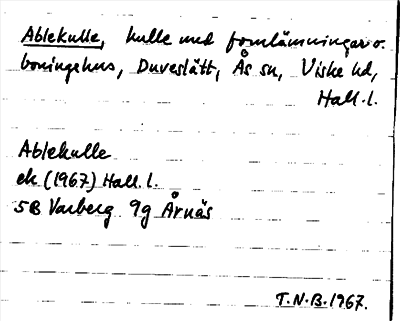 Ablekulle, kulle med fornlämningar o.
boningshus, Duveslätt, Ås sn, Viske hd,
Hall. l.
Ablekulle
ek (1967) Hall. l.
5B Varberg 9g Årnäs
T.N.B. 1967.